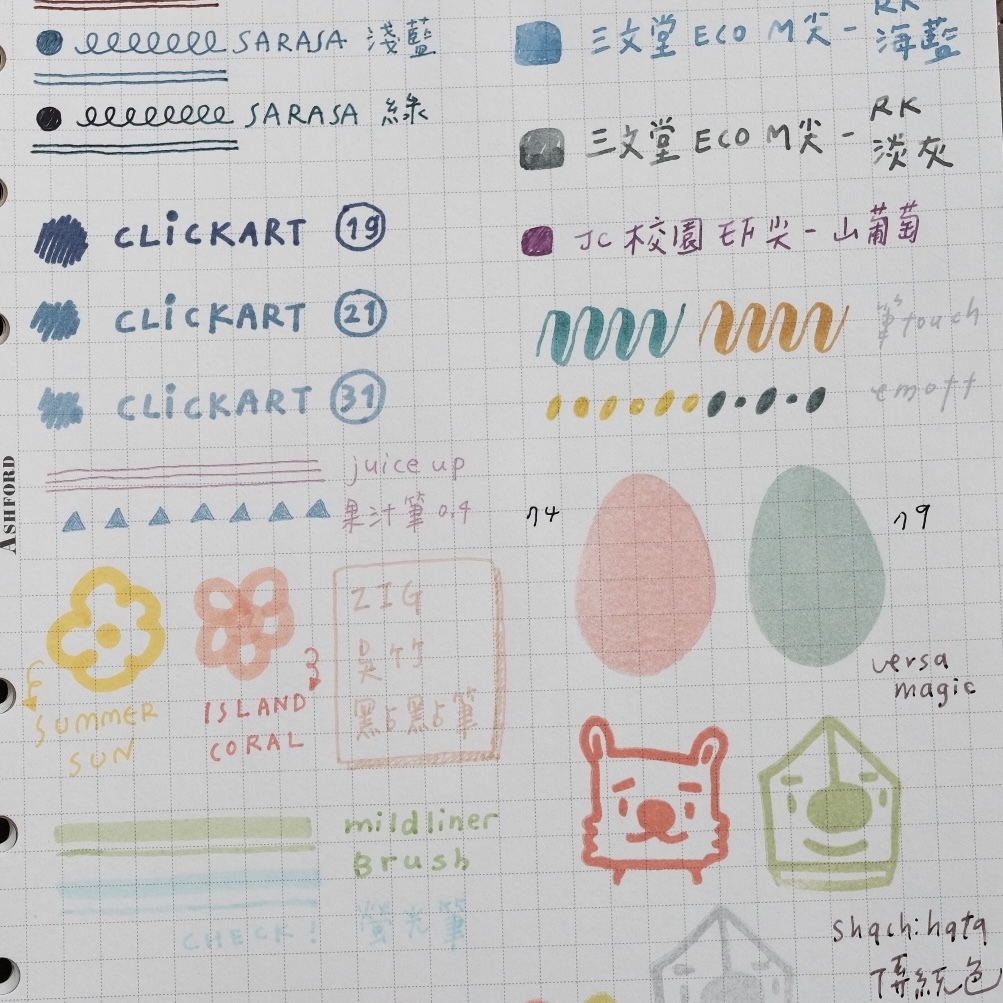 SARASA 淺藍
SARASA 綠
CLiCKART 19
CLiCKART 21
CLiCKART 31
juice up
果汁筆 0.4
ASHFORD
SUMMER
SUN
ISLAND
CORAL
ZIG
吳竹
點點點筆
mildliner
Brush
CHECK!
螢光筆
三文堂 ECO M尖 - RK
海藍
三文堂 ECO M尖 - RK
淡灰
JC 校園 EF尖 - 山葡萄
筆touch
emott
74
79
versa
magic
shachihata
傳統色